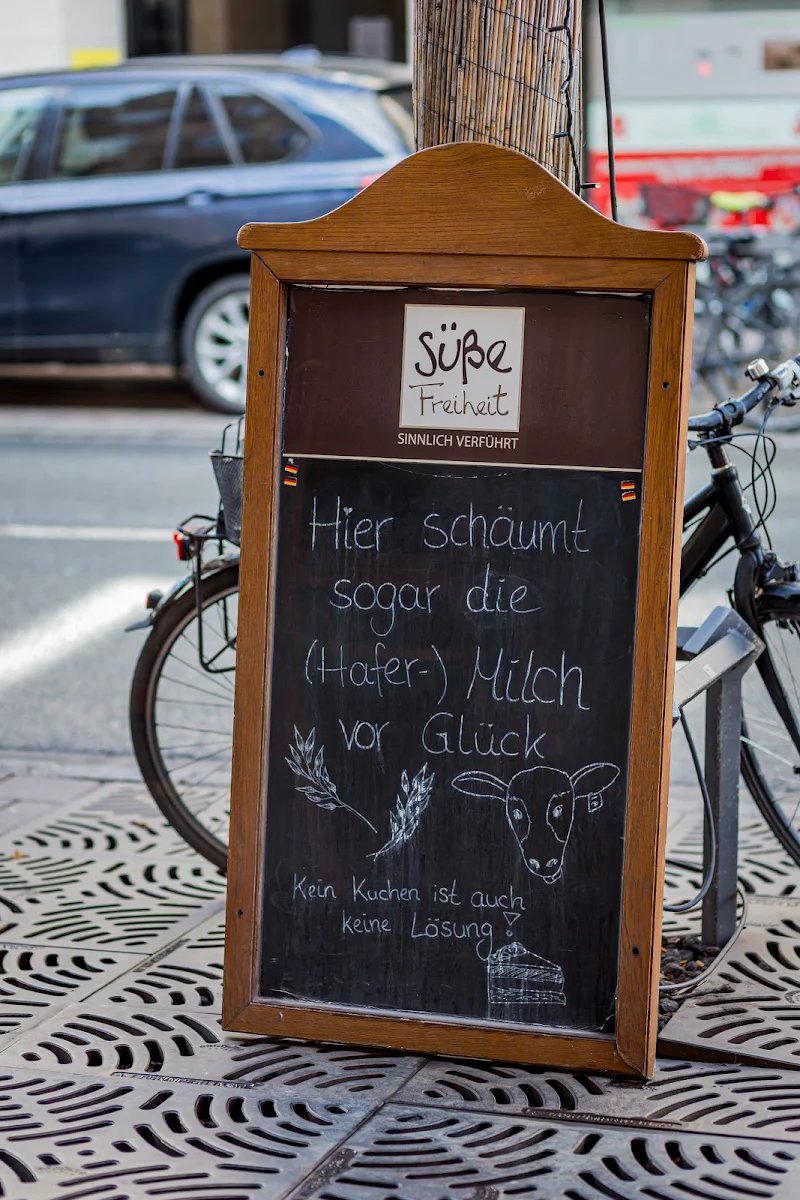 Süße
Freiheit
SINNLICH VERFÜHRT
Hier schäumt
sogar die
(Hafer-) Milch
vor Glück
Kein Kuchen ist auch
keine Lösung!